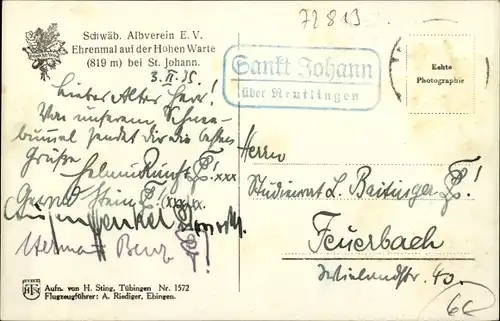 72819
Schwäb. Albverein E. V.
Ehrenmal auf der Hohen Warte
(819 m) bei St. Johann.
Sankt Johann
über Reutlingen
Echte
Photographie
3. II. 35.
Lieber Alter Herr!
Von unserem Schnee-
bummel sendet dir die besten
Grüße
Herrn
Studienrat L. Baitinger
Feuerbach
Wielandstr. 40.
Hermann Benz
Aufn. von H. Sting, Tübingen Nr. 1572
Flugzeugführer: A. Riediger, Ebingen.